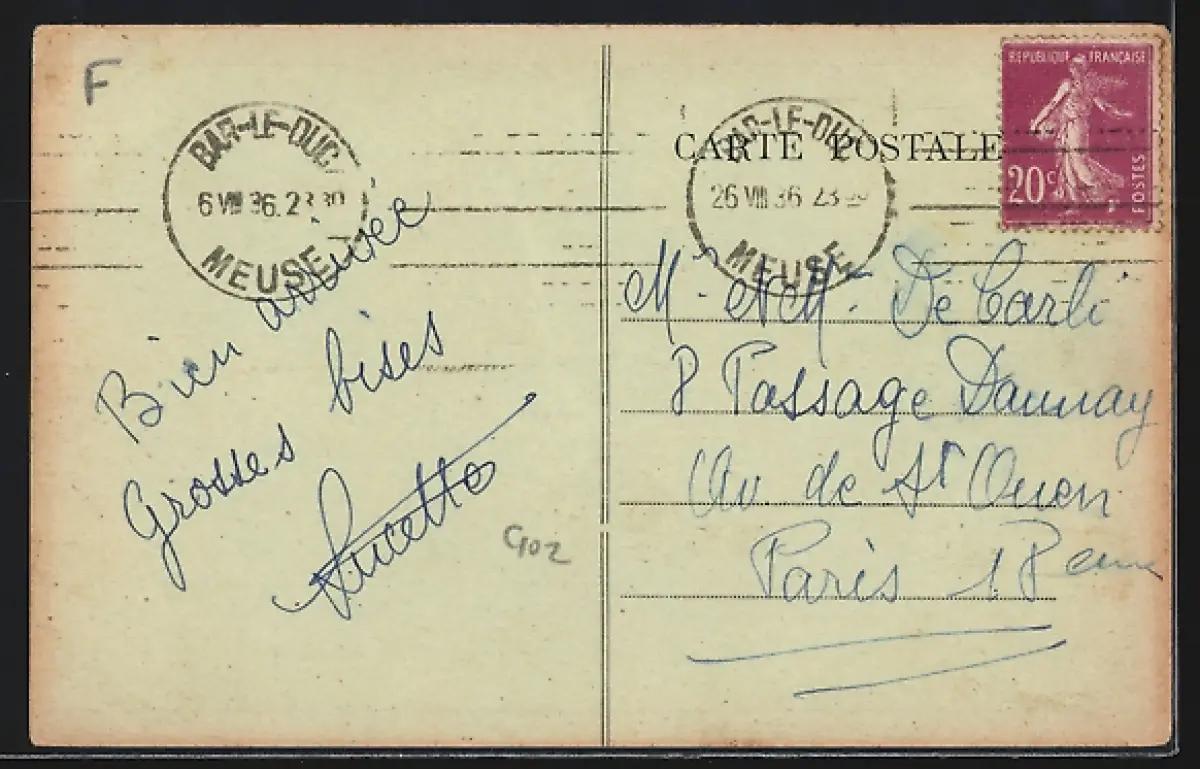 F
BAR-LE-DUC
6 VIII 36. 23 30
MEUSE
Bien arrivée
Grosses bises
Lucette
G02
CARTE POSTALE
BAR-LE-DUC
26 VIII 36 23
MEUSE
REPUBLIQUE FRANÇAISE
20c
POSTES
Mr et Mme De Carli
8 Passage Daunay
Av de St Ouen
Paris 18 eme